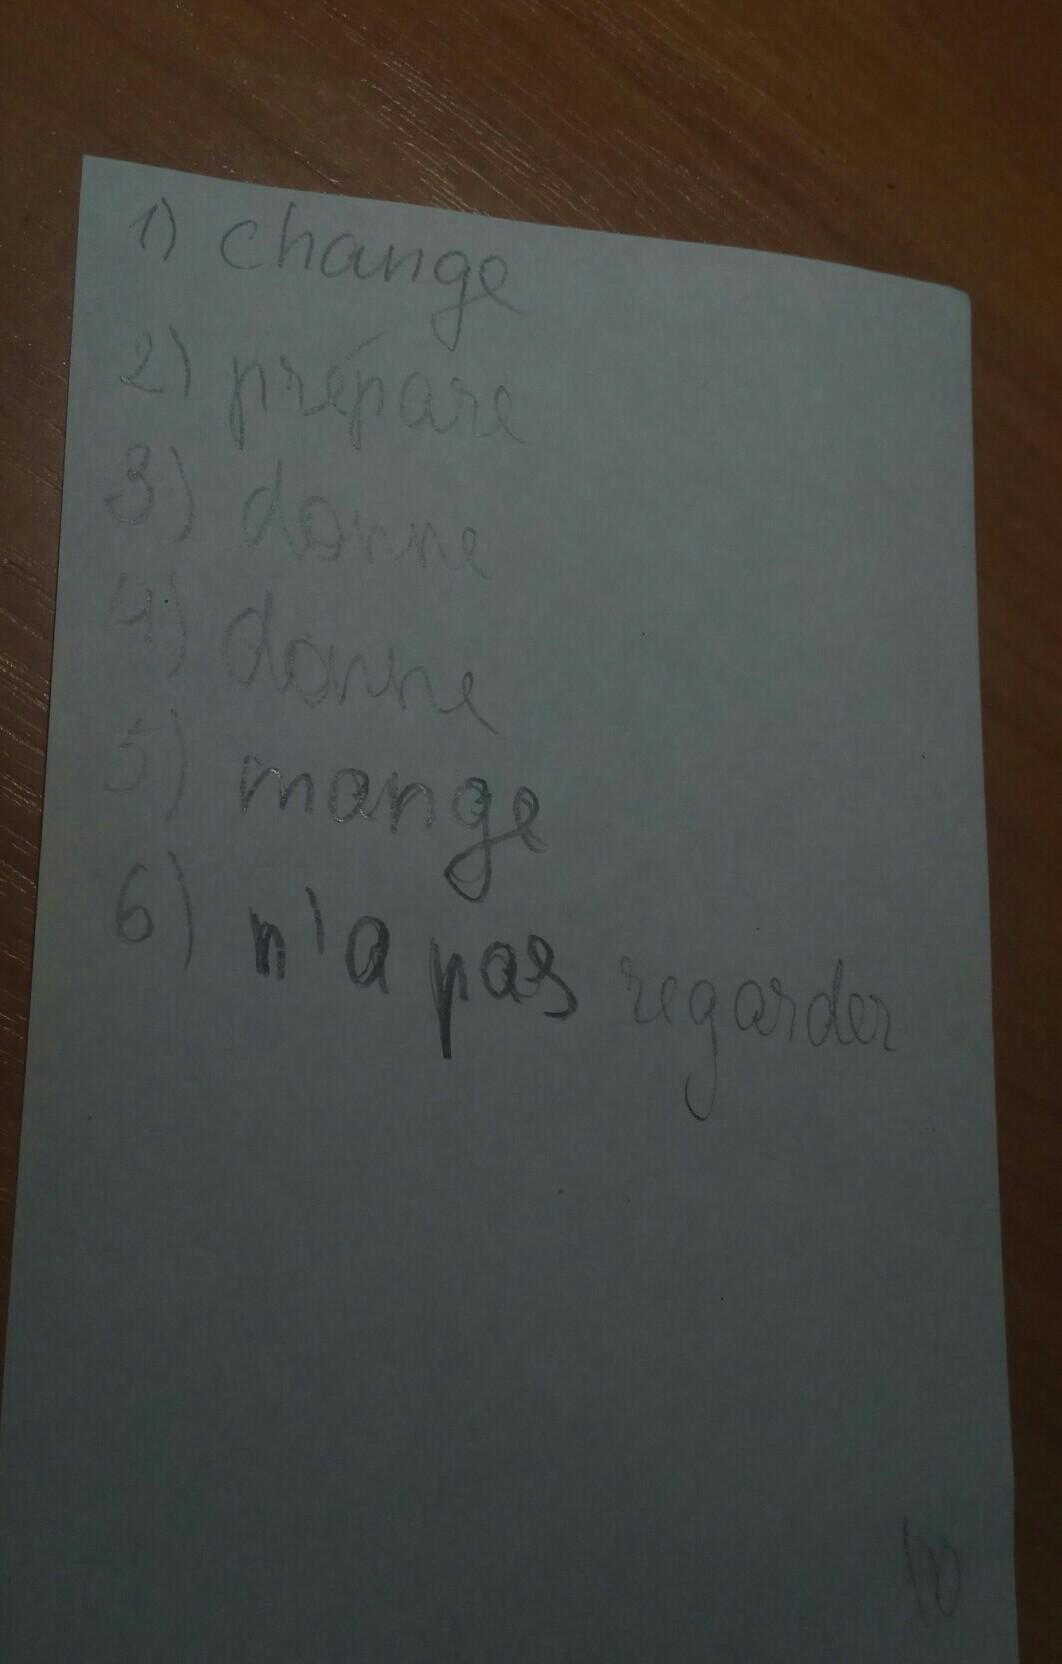 1) change
2) prépare
3) donne
4) donne
5) mange
6) n'a pas regarder